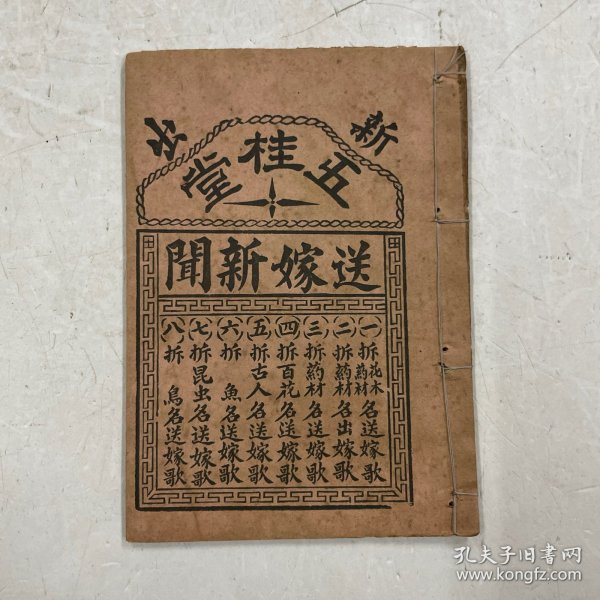 新出
五桂堂
送嫁新聞
(一)拆花木药材名送嫁歌
(二)拆药材名出嫁歌
(三)拆药材名送嫁歌
(四)拆百花名送嫁歌
(五)拆古人名送嫁歌
(六)拆魚名送嫁歌
(七)拆昆虫名送嫁歌
(八)拆鳥名送嫁歌
孔夫子旧书网
www.kongfz.com